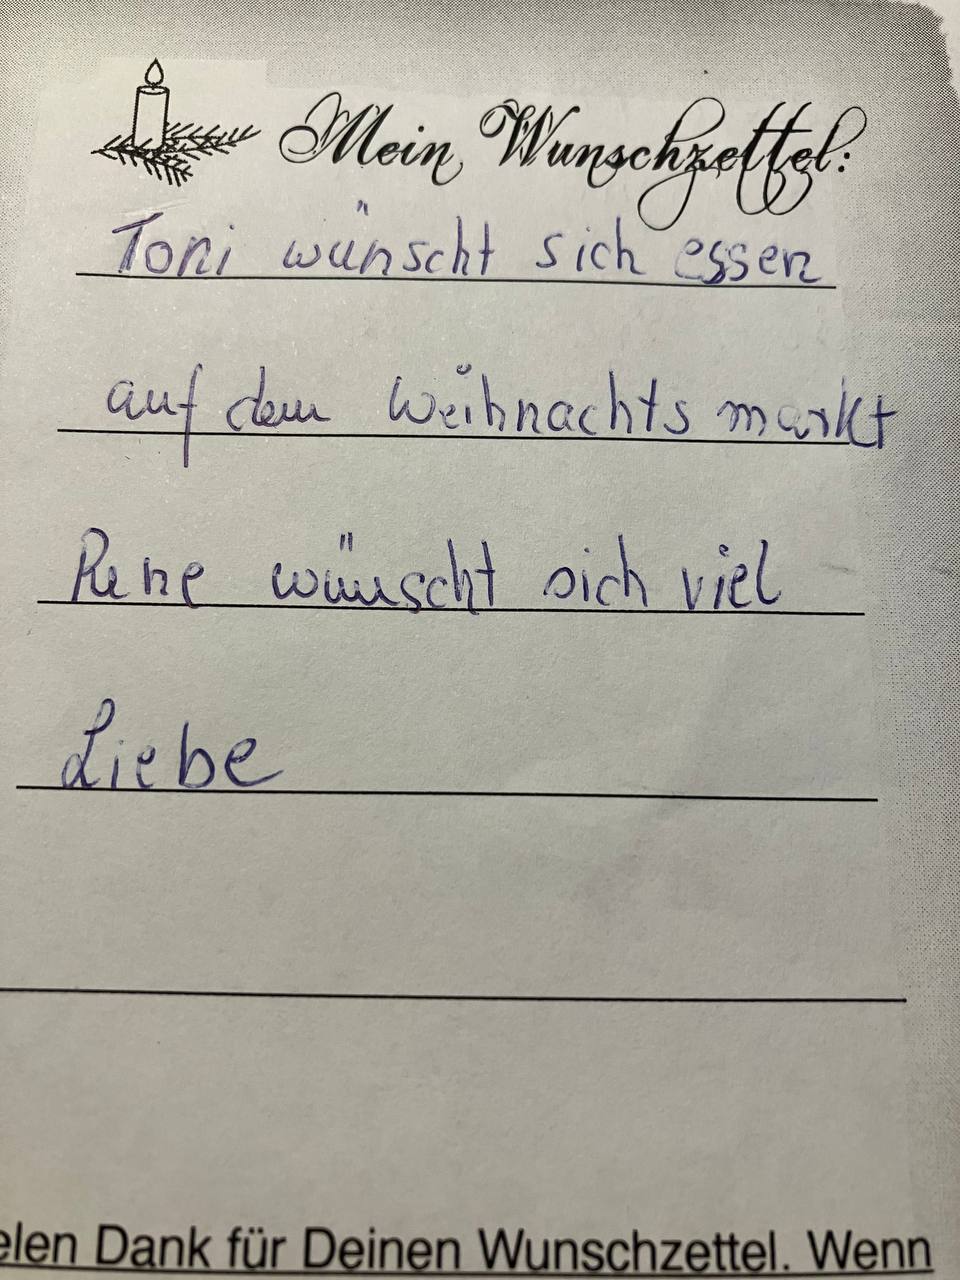 Mein Wunschzettel:
Toni wünscht sich essen
auf dem Weihnachtsmarkt
Rene wünscht sich viel
Liebe
elen Dank für Deinen Wunschzettel. Wenn